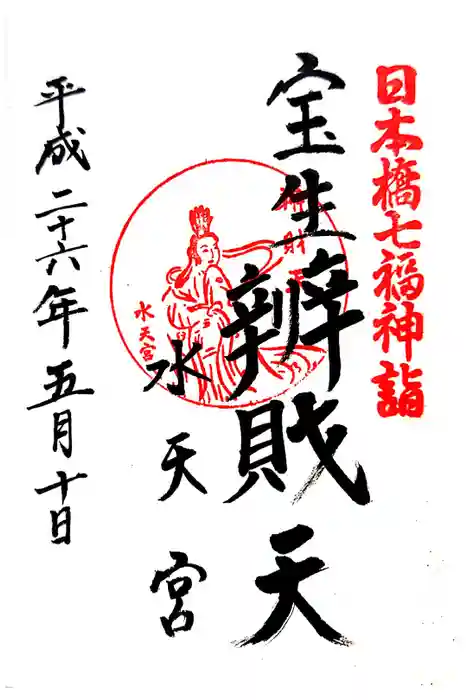 日本橋七福神詣
宝生辨財天
水天宮
平成二十六年五月十日
辨財天
水天宮